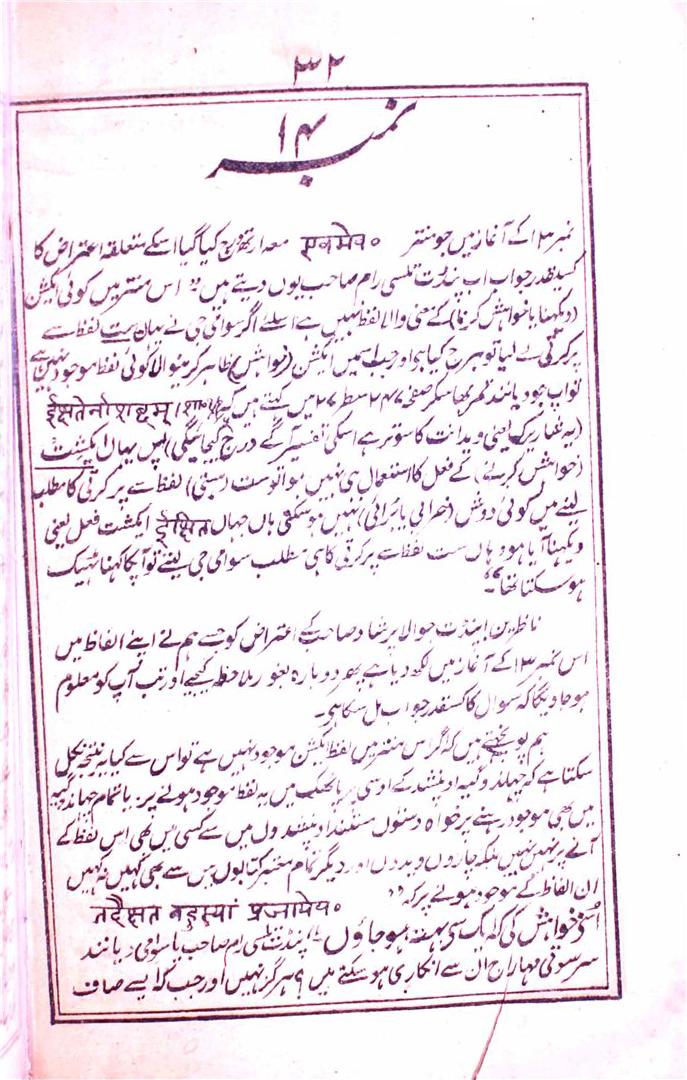 ۳۲
نمبر ۱۴
نمبر ۱۳ کے آغاز میں جو منتر एवमेव॰ معہ ارتھ درج کیا گیا اسکے متعلقہ اعتراض کا
کسیقدر جواب اب پنڈت تلسی رام صاحب یوں دیتے ہیں "اس منتر میں کوئی ایکشن
(دیکھنا یا خواہش کرنا) کے معنی والا لفظ نہیں ہے اسلئے اگر سوامی جی نے یہاں ست لفظ سے
پرکرتی لے لیا تو ہرج کیا ہے اور جب اسمیں ایکشن (خواہش) ظاہر کرنیوالا کوئی لفظ موجود نہیں ہے
تو آپ خود دیانند تمر بھاسکر صفحہ ۲۴۷ سطر ۲۷ میں کہتے ہیں کہ ईक्षतेर्नाशब्दम्
(یہ شاریرک یعنی ویدانت کا سوتر ہے اسکی تفسیر آگے درج کیجائیگی) پس یہاں ایکشت
(خواہش کرنے) کے فعل کا استعمال ہی نہیں ہوا تو ست (ہستی) لفظ سے پرکرتی کا مطلب
لینے میں کوئی دوش (خرابی یا برائی) نہیں ہو سکتی ہاں جہاں ईक्षति ایکشت فعل یعنی
دیکھنا آیا ہو وہاں ست لفظ سے پرکرتی کا ہی مطلب سوامی جی لیتے تو آپکا کہنا ٹھیک
ہو سکتا تھا"۔
ناظرین! پنڈت جوالا پرشاد صاحب کے اعتراض کو جسے ہم نے اپنے الفاظ میں
اس نمبر ۱۳ کے آغاز میں لکھ دیا ہے پھر دوبارہ بغور ملاحظہ کیجیے اور تب آپ کو معلوم
ہو جاویگا کہ سوال کا کسقدر جواب مل سکا ہے۔
ہم پوچھتے ہیں کہ اگر اس منتر میں لفظ ایکشن موجود نہیں ہے تو اس سے کیا یہ نتیجہ نکل
سکتا ہے کہ چھاندوگیہ اوپنشد کے اوسی پرپاٹھک میں یہ لفظ موجود ہونے پر: یا تمام چھاندوگیہ
میں بھی موجود رہنے پر خواہ دسوں مستند اوپنشدوں میں سے کسی میں بھی اس لفظ کے
آنے پر نہیں نہیں بلکہ چاروں ویدوں اور دیگر تمام معتبر کتابوں میں سے بھی کہیں نہ کہیں
ان الفاظ کے موجود ہونے پر کہ "
तदैक्षत बहुस्यां प्रजायेय॰
اُسنے خواہش کی کہ ایک سے بہت ہو جاؤں " پنڈت تلسی رام صاحب یا سوامی دیانند
سرسوتی مہاراج ان سے انکاری ہو سکتے ہیں؟ ہرگز نہیں اور جب کہ ایسے صاف